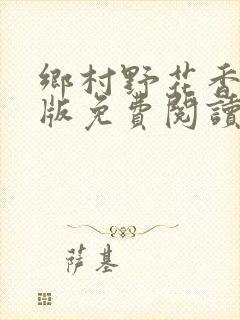 鄉村野花香
版免費閱讀
萨基